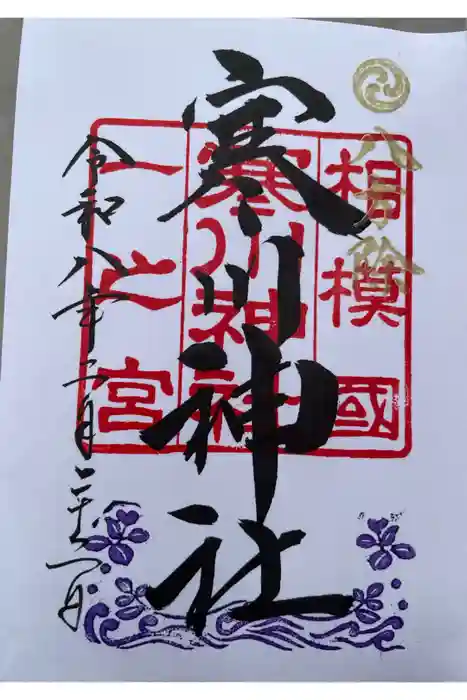 八方除
相模國
寒川神社
一之宮
寒川神社
令和八年二月二十六日